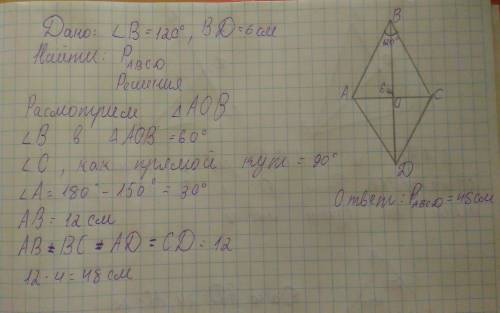 Дано: ∠B=120°, BD=6см
Найти: P_ABCD
Решения
Расмотрим △AOB
∠B в △AOB=60°
∠O, как прямой кут=90°
∠A=180°-150°=30°
AB=12см
AB=BC=AD=CD=12
12·4=48см
B
120°
A
6см
O
C
D
Ответ: P_ABCD=48см